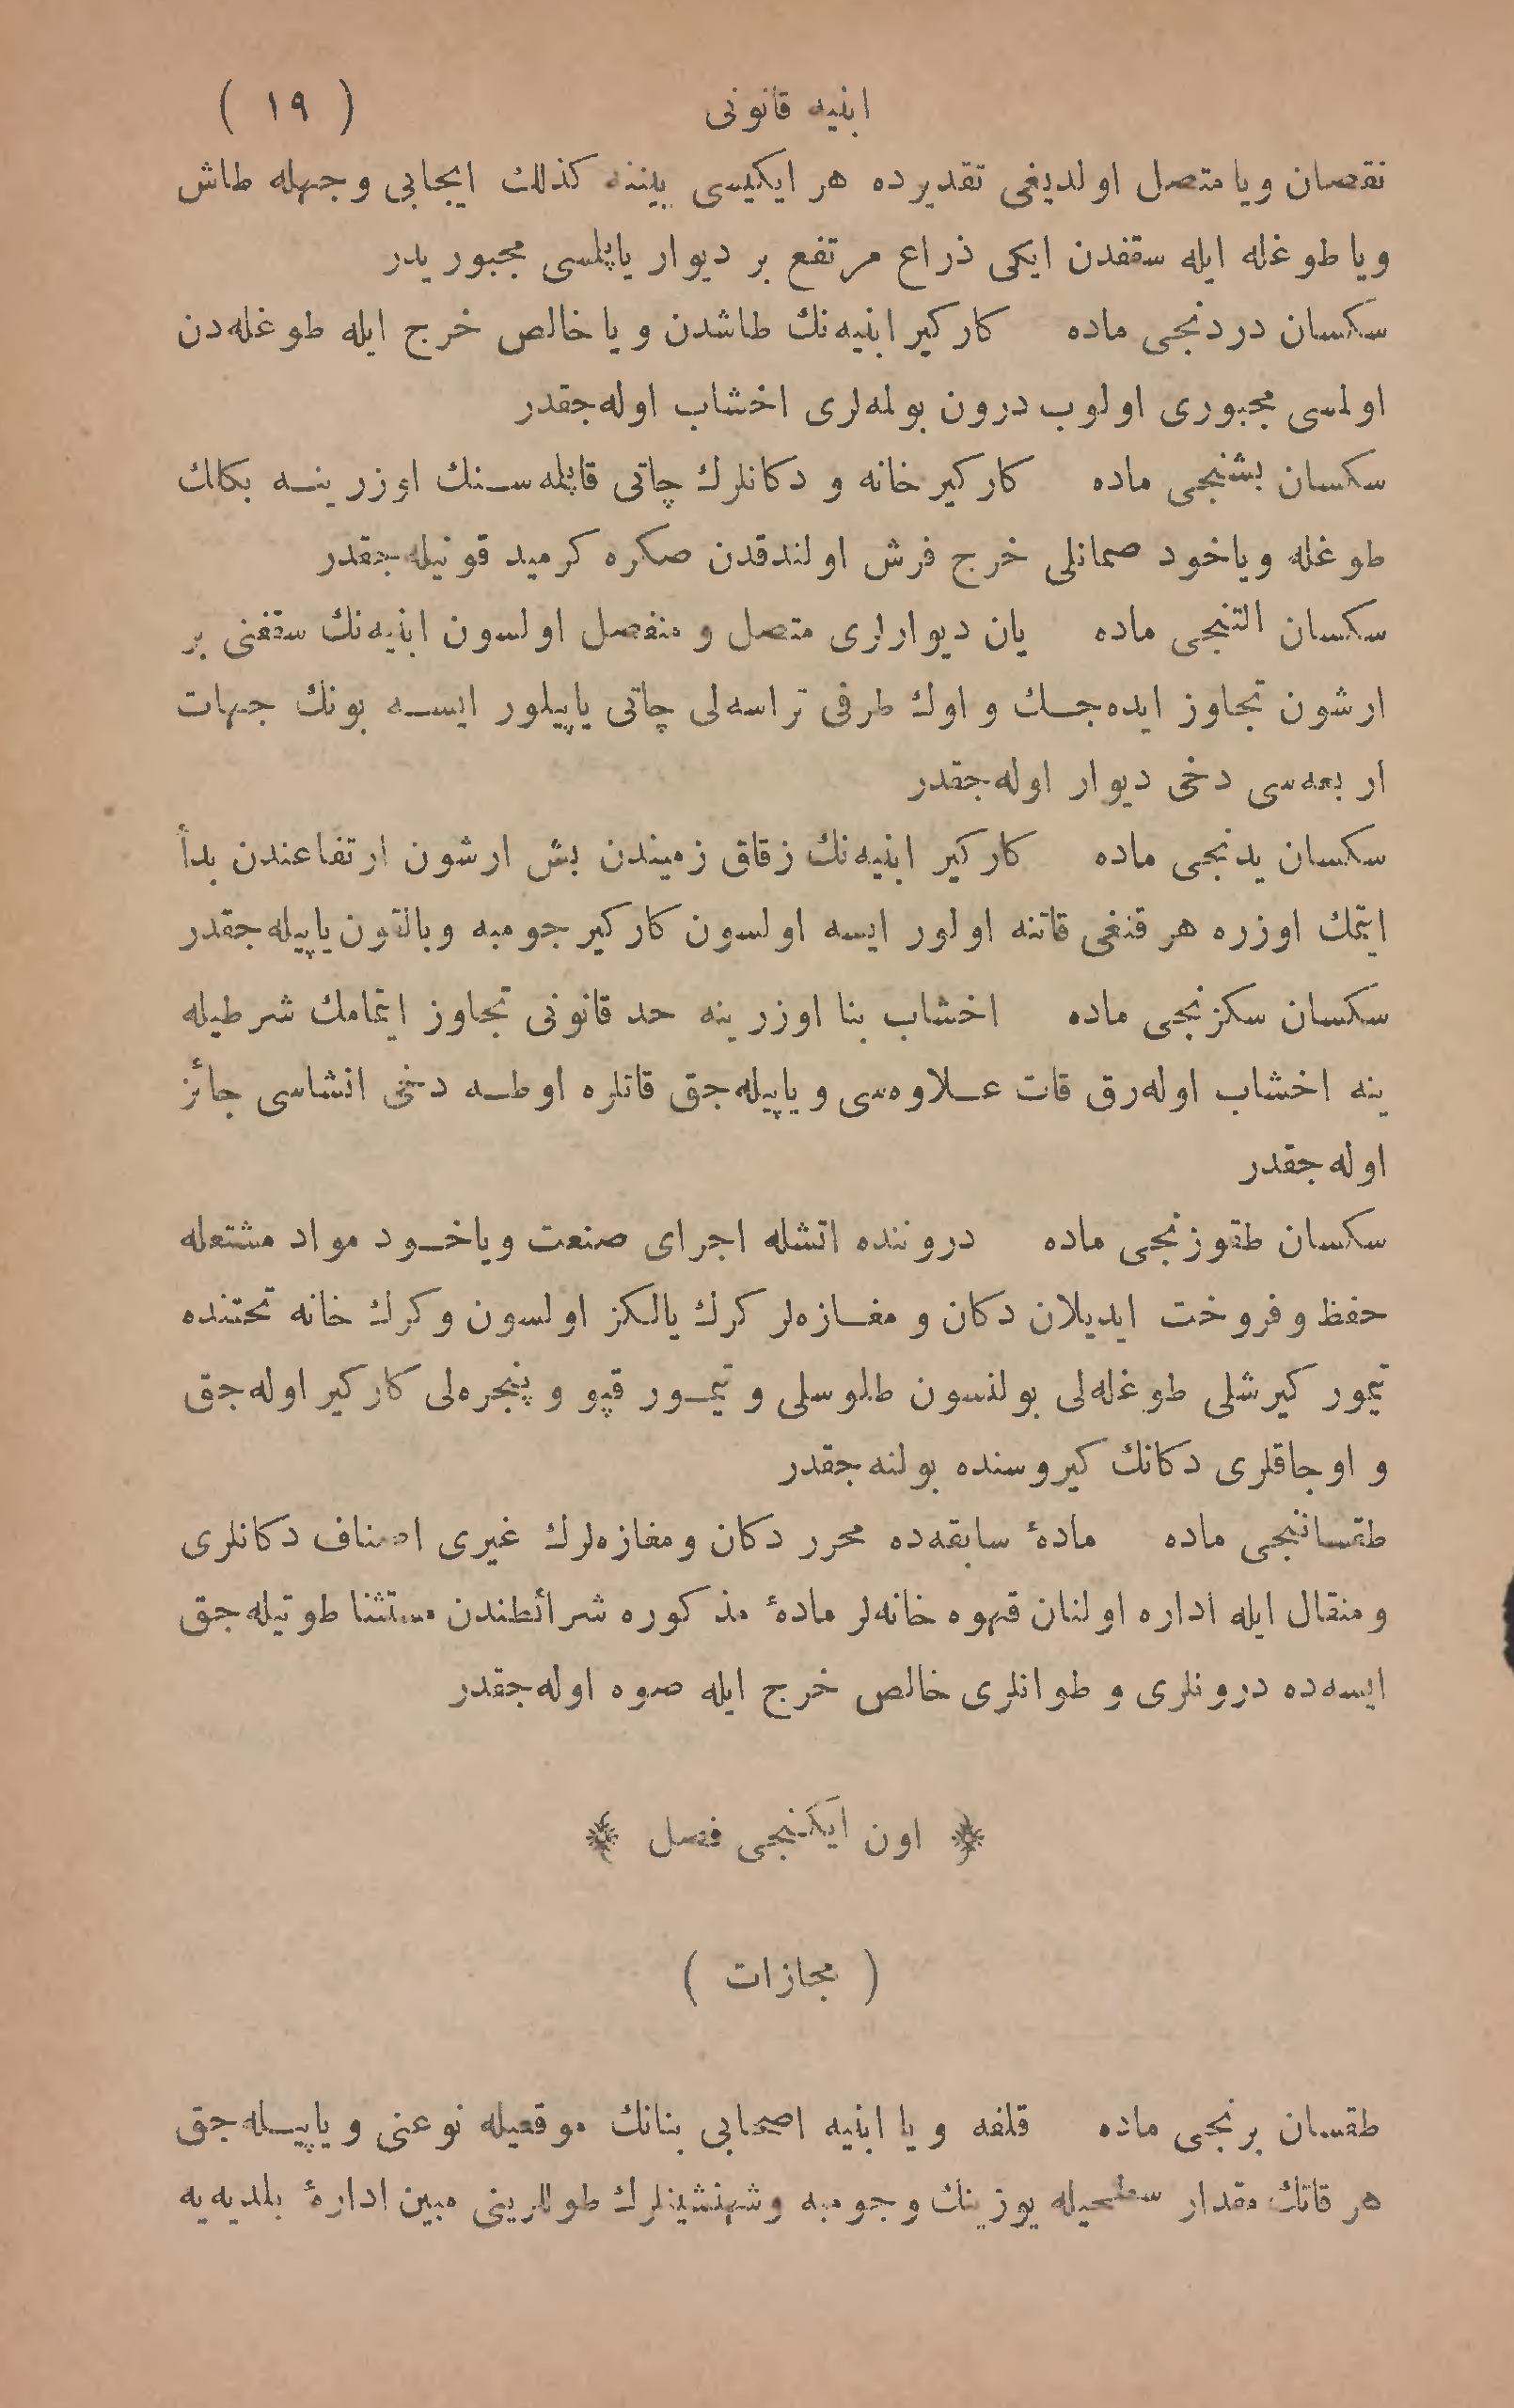 ابنیه قانونی ( ١٩ )
نقصان ویا متصل اولدیغی تقدیرده هر ایکیسی بیننه کذلك ایجابی وجهله طاش
ویا طوغله ایله سقفدن ایکی ذراع مرتفع بر دیوار یاپلسی مجبوریدر
سکسان دردنجی ماده کارکیر ابنیه‌نك طاشدن ویا خالص خرج ایله طوغله‌دن
اولمسی مجبوری اولوب درون بولمه‌لری اخشاب اوله‌جقدر
سکسان بشنجی ماده کارکیر خانه و دکانلرك چاتی قاپلمه‌سـنك اوزرینـه بکالك
طوغله ویاخود صمانلی خرج فرش اولندقدن صکره کرمید قونیله‌جقدر
سکسان التنجی ماده یان دیوارلری متصل و منفصل اولسون ابنیه‌نك سقفنی بر
ارشون تجاوز ایده‌جـك و اوك طرفی تراسه‌لی چاتی یاپیلور ایسـه بونك جهات
اربعه‌سی دخی دیوار اوله‌جقدر
سکسان یدنجی ماده کارکیر ابنیه‌نك زقاق زمیندن بش ارشون ارتفاعندن بدأ
ایتمك اوزره هر قنغی قاتنه اولور ایسه اولسون کارکیر جومبه وبالقون یاپیله‌جقدر
سکسان سکزنجی ماده اخشاب بنا اوزرینه حد قانونی تجاوز ایتمامك شرطیله
ینه اخشاب اوله‌رق قات عـلاوه‌سی ویاپیله‌جق قاتلره اوطـه دخی انشاسی جائز
اوله‌جقدر
سکسان طقوزنجی ماده دروننده اتشله اجرای صنعت ویاخـود مواد مشتعله
حفظ وفروخت ایدیلان دکان و مغـازه‌لر کرك یالکز اولسون وکرك خانه تحتنده
تیمور کیرشلی طوغله‌لی بولنسون طلوسلی و تیمـور قپو و پنجره‌لی کارکیر اوله‌جق
و اوجاقلری دکانك کیروسنده بولنه‌جقدر
طقساننجی ماده مادهٔ سابقه‌ده محرر دکان ومغازه‌لرك غیری اصناف دکانلری
ومنقال ایله اداره اولنان قهوه خانه‌لر مادهٔ مذکوره شرائطندن مستثنا طوتیله‌جق
ایسه‌ده درونلری و طوانلری خالص خرج ایله صوه اوله‌جقدر
اون ایکنجی فصل
( مجازات )
طقسان برنجی ماده قلفه ویا ابنیه اصحابی بنانك موقعیله نوعنی ویاپیـله‌جق
هر قاتك مقدار سطحیله یوزینك وجومبه وشهنشینلرك طوللرینی مبین ادارهٔ بلدیه‌یه